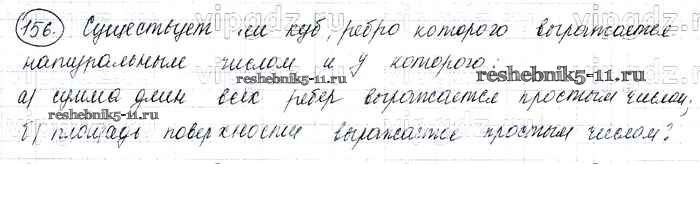 156. Существует ли куб, ребро которого выражается
натуральным числом и у которого:
reshebnik5-11.ru
reshebnik5-11.ru
а) сумма длин всех ребер выражается простым числом;
reshebnik5-11.ru
б) площадь поверхности выражается простым числом?